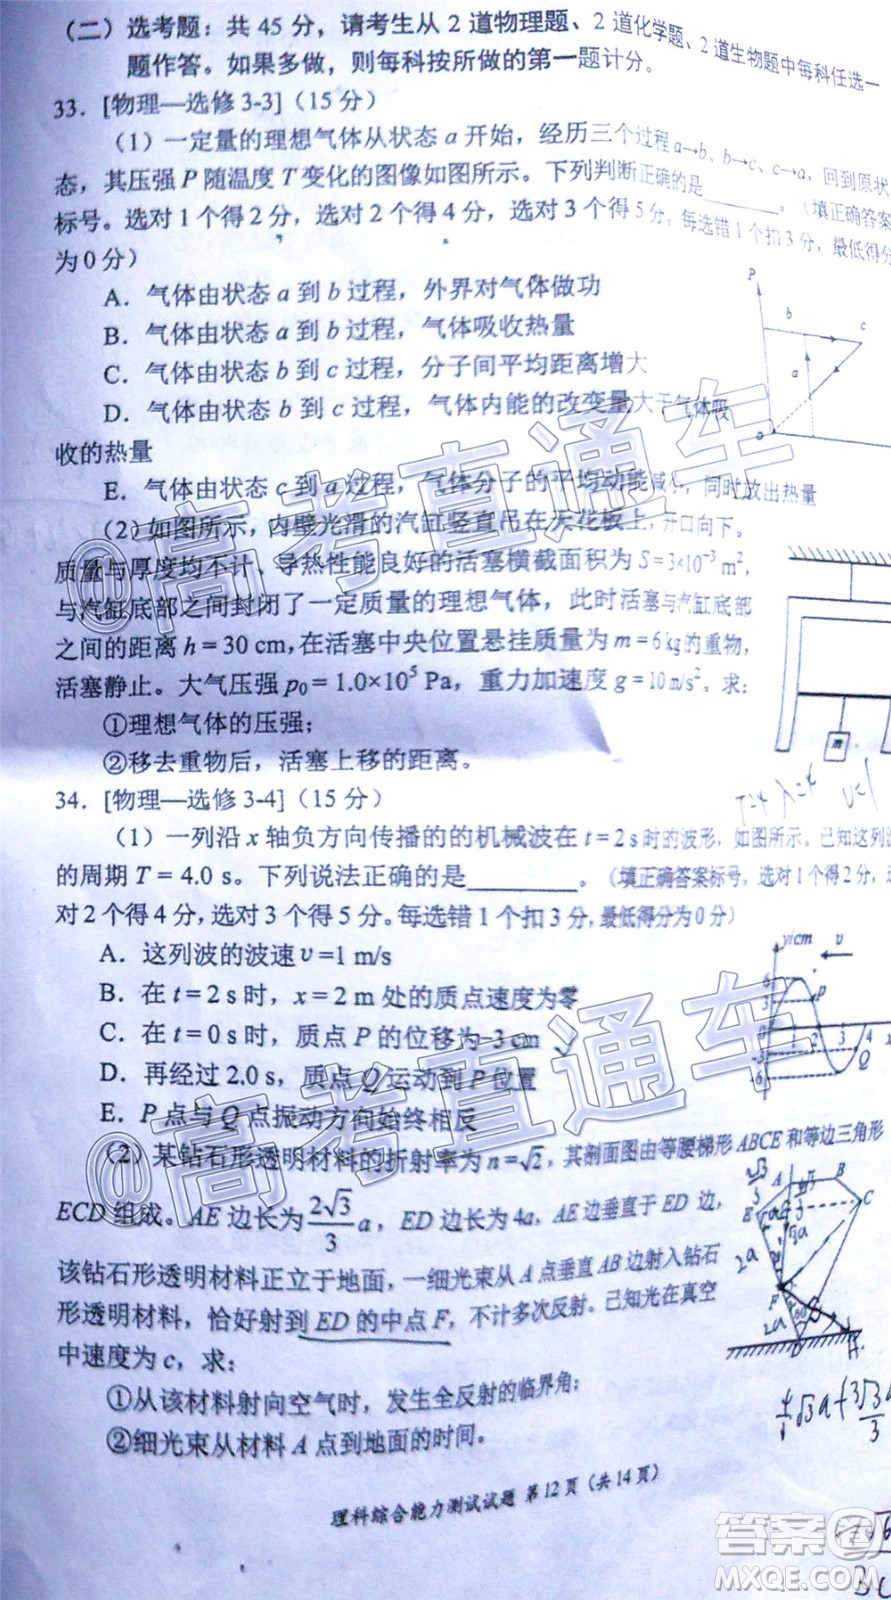 (二) 选考题：共 45 分，请考生从 2 道物理题、2 道化学题、2 道生物题中每科任选一
题作答。如果多做，则每科按所做的第一题计分。
33．[物理—选修 3-3]（15 分）
（1）一定量的理想气体从状态 a 开始，经历三个过程 a→b、b→c、c→a，回到原状
态，其压强 P 随温度 T 变化的图像如图所示。下列判断正确的是______。（填正确答案
标号。选对 1 个得 2 分，选对 2 个得 4 分，选对 3 个得 5 分，每选错 1 个扣 3 分，最低得分
为 0 分）
A．气体由状态 a 到 b 过程，外界对气体做功
B．气体由状态 a 到 b 过程，气体吸收热量
C．气体由状态 b 到 c 过程，分子间平均距离增大
D．气体由状态 b 到 c 过程，气体内能的改变量大于气体吸
收的热量
E．气体由状态 c 到 a 过程，气体分子的平均动能减小，同时放出热量
P
b
c
a
o
（2）如图所示，内壁光滑的汽缸竖直吊在天花板上，开口向下。
质量与厚度均不计、导热性能良好的活塞横截面积为 S = 3×10⁻³ m²，
与汽缸底部之间封闭了一定质量的理想气体，此时活塞与汽缸底部
之间的距离 h = 30 cm，在活塞中央位置悬挂质量为 m = 6 kg 的重物，
活塞静止。大气压强 p₀ = 1.0×10⁵ Pa，重力加速度 g = 10 m/s²。求：
①理想气体的压强；
②移去重物后，活塞上移的距离。
34．[物理—选修 3-4]（15 分）
T=4 λ=4 v=1
（1）一列沿 x 轴负方向传播的的机械波在 t = 2 s 时的波形，如图所示。已知这列波
的周期 T = 4.0 s。下列说法正确的是________。（填正确答案标号，选对 1 个得 2 分，选
对 2 个得 4 分，选对 3 个得 5 分。每选错 1 个扣 3 分，最低得分为 0 分）
A．这列波的波速 υ =1 m/s
B．在 t = 2 s 时，x = 2 m 处的质点速度为零
C．在 t = 0 s 时，质点 P 的位移为 -3 cm
D．再经过 2.0 s，质点 Q 运动到 P 位置
E．P 点与 Q 点振动方向始终相反
y/cm
υ
6
3
P
0
1 2 3 4 x
-3
-6
Q
（2）某钻石形透明材料的折射率为 n = √2，其剖面图由等腰梯形 ABCE 和等边三角形
ECD 组成。AE 边长为 2√3/3 a，ED 边长为 4a，AE 边垂直于 ED 边，
该钻石形透明材料正立于地面，一细光束从 A 点垂直 AB 边射入钻石
形透明材料，恰好射到 ED 的中点 F，不计多次反射。已知光在真空
中速度为 c，求：
①从该材料射向空气时，发生全反射的临界角；
②细光束从材料 A 点到地面的时间。
A B
E C
2a
F
2a
60
D
H
理科综合能力测试试题 第12页（共14页）
@高考直通车
@高考直通车
答案圈
MXQE.COM